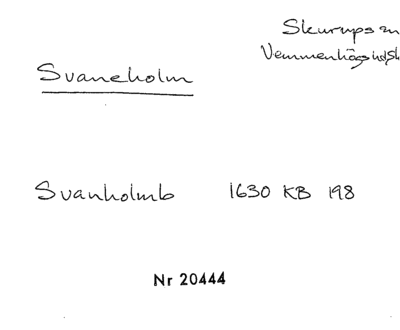 Skurups sn
Vemmenhögs hd, Sk
Svaneholm
Svanholmb 1630 KB 198
Nr 20444